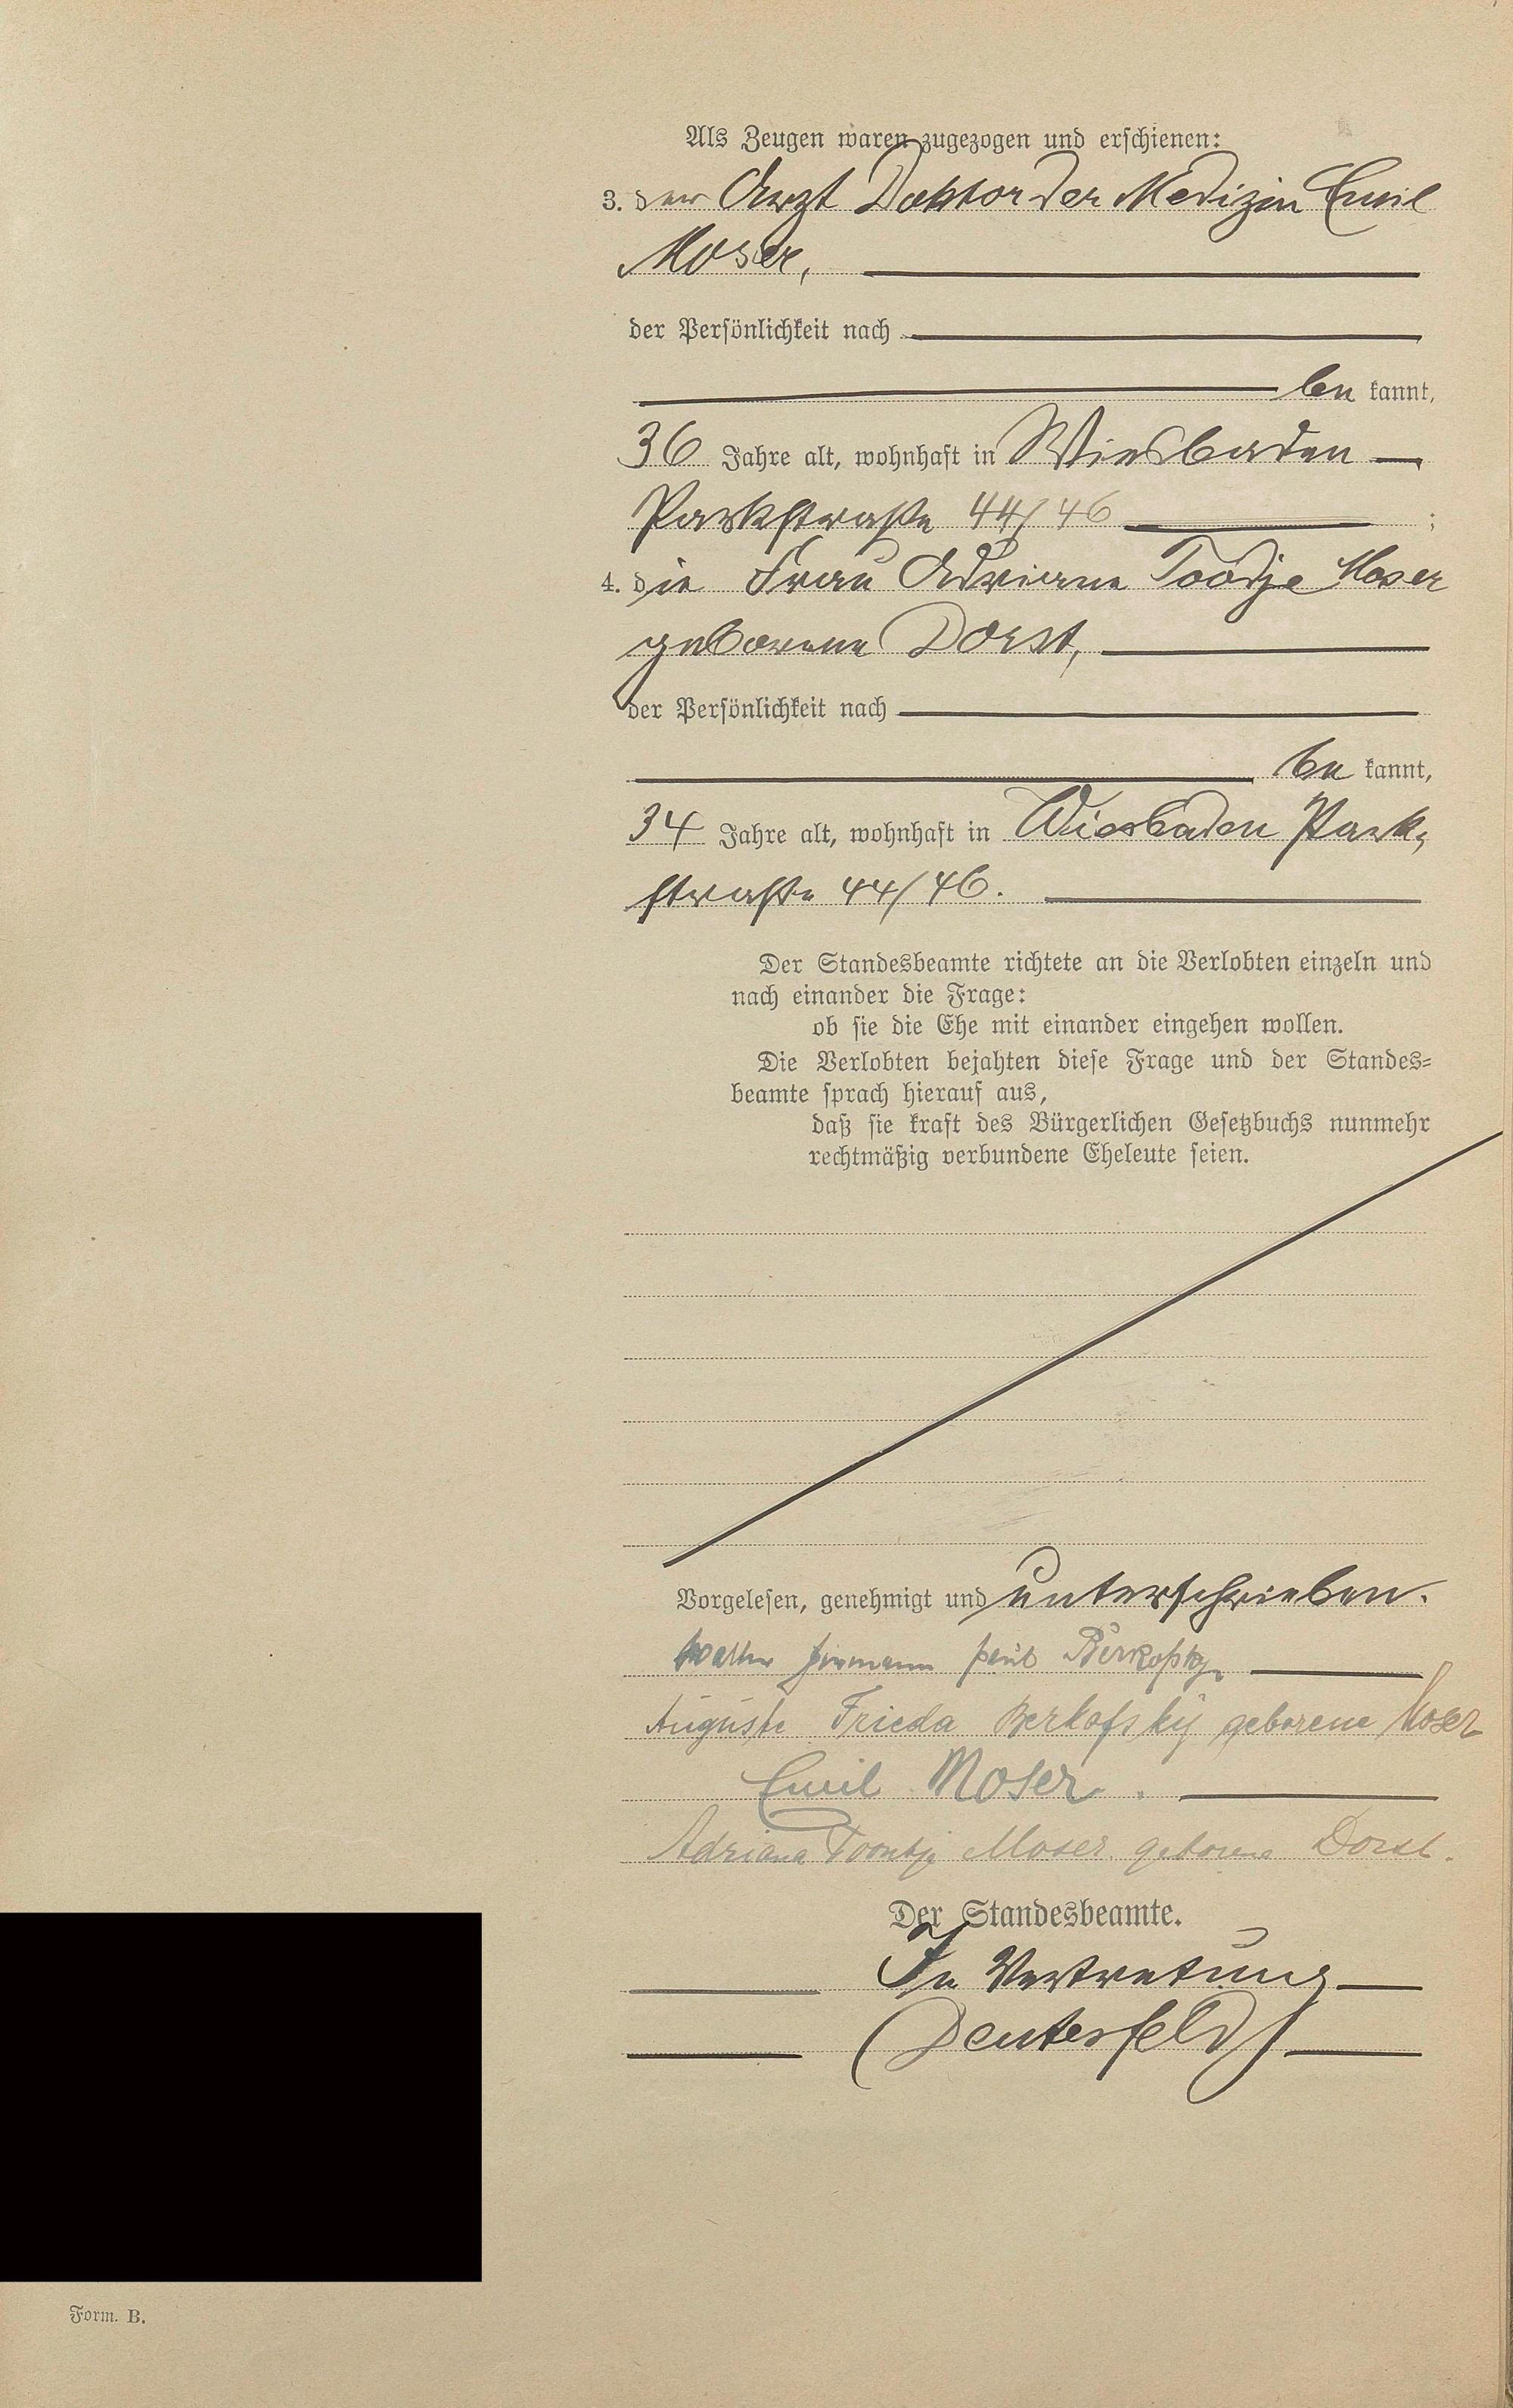 Als Zeugen waren zugezogen und erschienen:
3. der Arzt Doktor der Medizin Emil
Moser,
der Persönlichkeit nach
be kannt,
36 Jahre alt, wohnhaft in Wiesbaden
Parkstraße 44/46 ;
4. die Frau Adriana Toodje Moser
geborene Dorst,
der Persönlichkeit nach
be kannt,
34 Jahre alt, wohnhaft in Wiesbaden Park-
straße 44/46.
Der Standesbeamte richtete an die Verlobten einzeln und
nach einander die Frage:
ob sie die Ehe mit einander eingehen wollen.
Die Verlobten bejahten diese Frage und der Standes=
beamte sprach hierauf aus,
daß sie kraft des Bürgerlichen Gesetzbuchs nunmehr
rechtmäßig verbundene Eheleute seien.
Vorgelesen, genehmigt und unterschrieben.
Walter Hermann Paul Berkofsky
Auguste Frieda Berkofsky geborene Moser
Emil Moser.
Adriana Toontje Moser geborene Dorst.
Der Standesbeamte.
In Vertretung
Deutesfeld
Form. B.